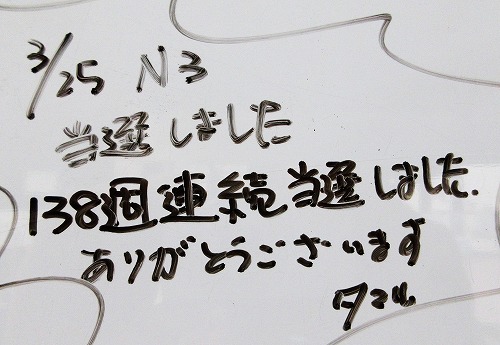 3/25 N3
当選しました
138週連続当選しました.
ありがとうございます